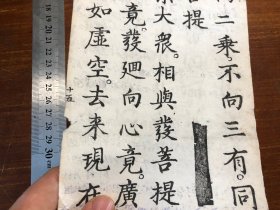 二乘。不向三有。同
菩提
大衆。相與發菩提
竟。發廻向心竟。廣
如虛空去来現在
18 19 20 21 22 23 24 25 26 27 28 29 30